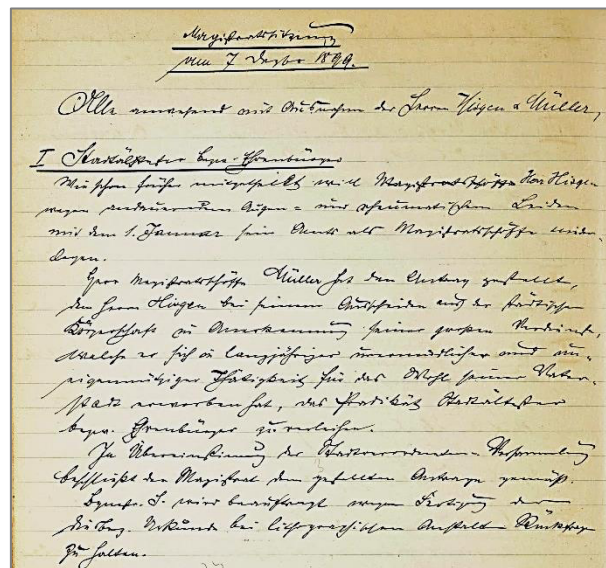 Magistratssitzung
am 7 Dezbr 1899.
Alle anwesend mit Ausnahme der Herren Hisgen u Müller,
I Stadtältester bezw. Ehrenbürger
Wie schon früher mitgetheilt will Magistratsschöffe Herr Hisgen
wegen andauerndem Augen- und rheumatischen Leiden
mit dem 1. Januar sein Amt als Magistratsschöffe nieder-
legen.
Herr Magistratsschöffe Müller hat den Antrag gestellt,
dem Herrn Hisgen bei seinem Ausscheiden aus der städtischen
Körperschaft in Anerkennung seiner großen Verdienste,
welche er sich in langjähriger unermüdlicher und un-
eigennütziger Thätigkeit für das Wohl seiner Vater-
stadt erworben hat, das Prädikat Stadtältester
bezw. Ehrenbürger zu verleihen.
In Übereinstimmung der Stadtverordneten-Versammlung
beschließt der Magistrat dem gestellten Antrage gemäß.
wird beauftragt wegen Fertigung der
diesbez. Urkunde bei lithographischen Anstalten Rückfrage
zu halten.